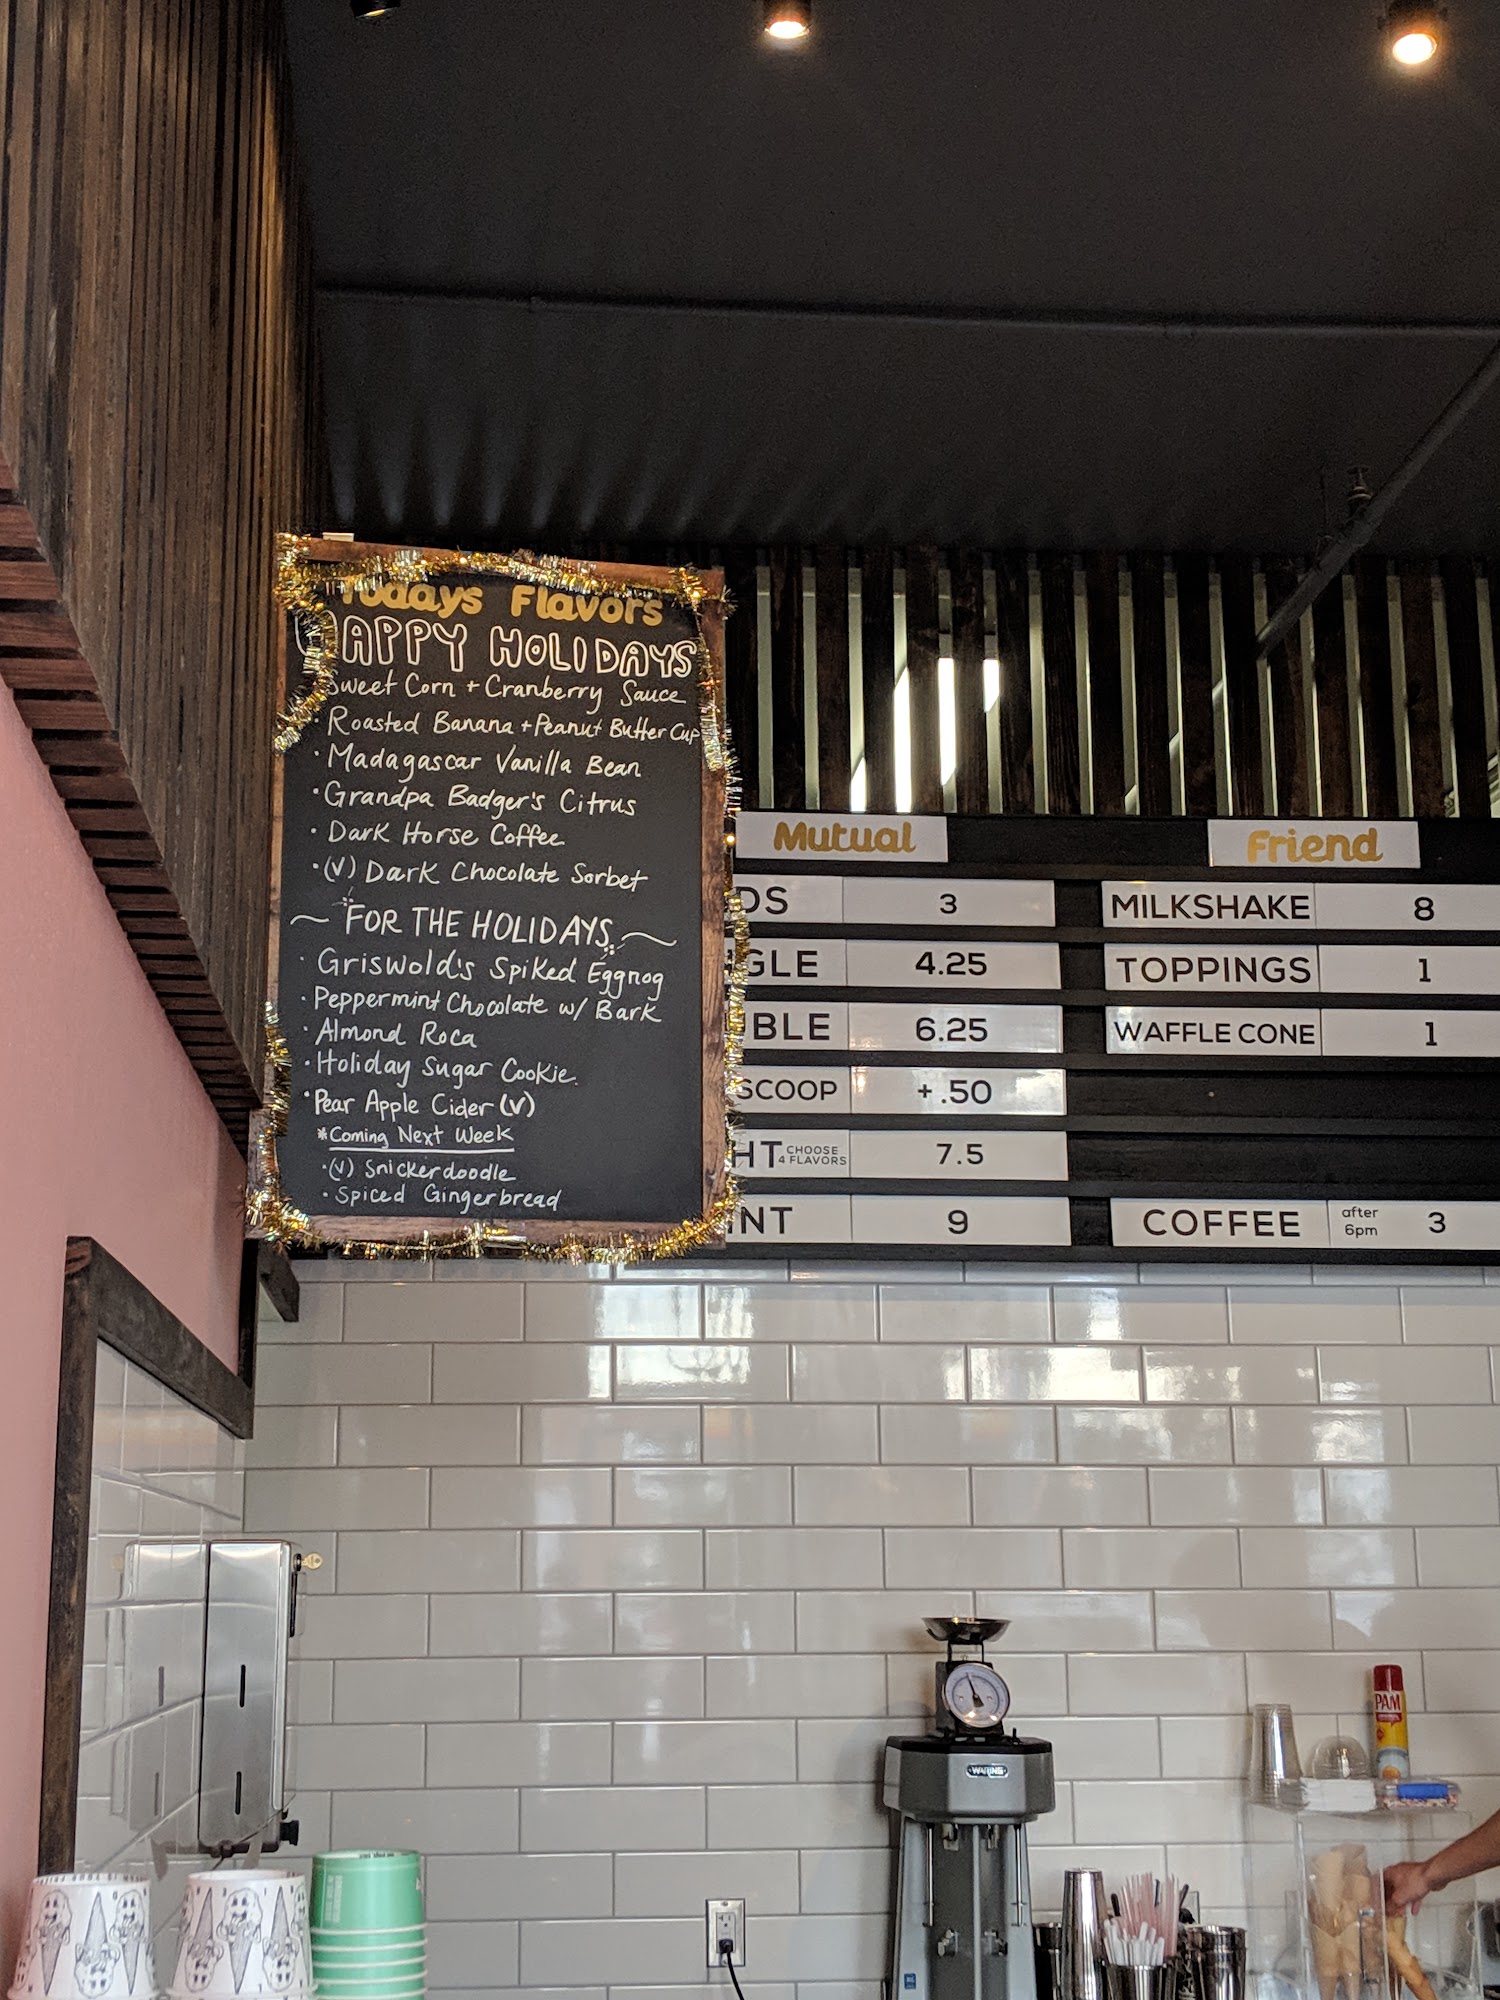 Todays Flavors
HAPPY HOLIDAYS
Sweet Corn + Cranberry Sauce
· Roasted Banana + Peanut Butter Cup
· Madagascar Vanilla Bean
· Grandpa Badger's Citrus
· Dark Horse Coffee
· (V) Dark Chocolate Sorbet
~ FOR THE HOLIDAYS ~
· Griswold's Spiked Eggnog
· Peppermint Chocolate w/ Bark
· Almond Roca
· Holiday Sugar Cookie
· Pear Apple Cider (V)
*Coming Next Week
· (V) Snickerdoodle
· Spiced Gingerbread
Mutual
DS 3
GLE 4.25
BLE 6.25
SCOOP +.50
HT CHOOSE 4 FLAVORS 7.5
NT 9
Friend
MILKSHAKE 8
TOPPINGS 1
WAFFLE CONE 1
COFFEE after 6pm 3
WARING
PAM